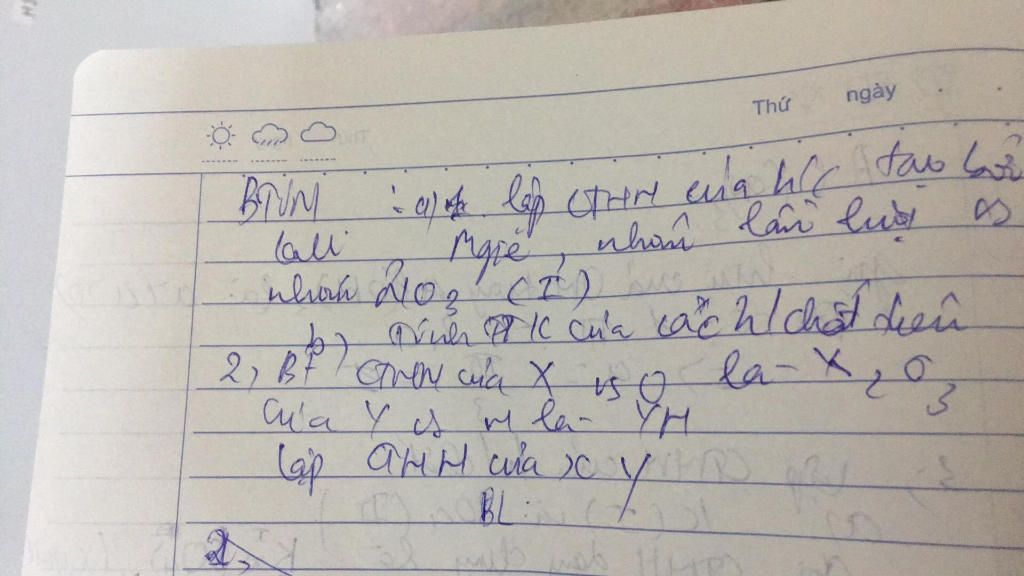 Thứ ngày
BTVN : a) lập CTHH của h/c tạo bởi
Magie, nhôm lần lượt vs
nhóm NO3 (I)
b) Tính PTK của các h/chất trên
2, Bt CTHH của X vs O là X2O3
của Y vs H là YH
Lập CTHH của X Y
BL:
2,